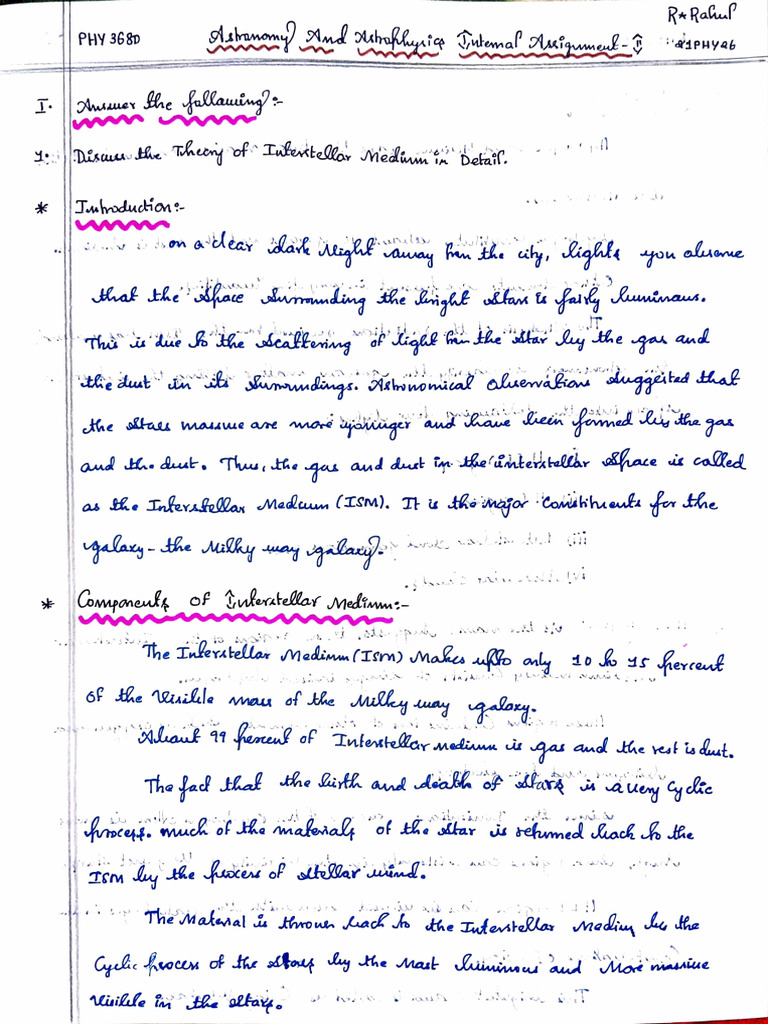 R*Rahul
PHY 368D Astronomy And Astrophysics Internal Assignment-II 21PHY26
I. Answer the following:-
1. Discuss the Theory of Interstellar Medium in Detail.
* Introduction:-
on a clear dark Night away from the city, lights you observe
that the space surrounding the bright stars is fairly luminous.
This is due to the scattering of light from the star by the gas and
the dust in its surroundings. Astronomical observations suggested that
the stars massive are more younger and have been formed by the gas
and the dust. Thus, the gas and dust in the interstellar space is called
as the Interstellar Medium (ISM). It is the major constituents for the
galaxy - the Milky way galaxy.
* Components of Interstellar Medium:-
The Interstellar Medium (ISM) Makes upto only 10 to 15 percent
of the visible mass of the Milky way galaxy.
About 99 percent of Interstellar medium is gas and the rest is dust.
The fact that the birth and death of stars is a very cyclic
process. much of the materials of the star is returned back to the
ISM by the process of stellar wind.
The Material is thrown back to the Interstellar Medium by the
cyclic process of the stars by the most luminous and More massive
visible in the stars.